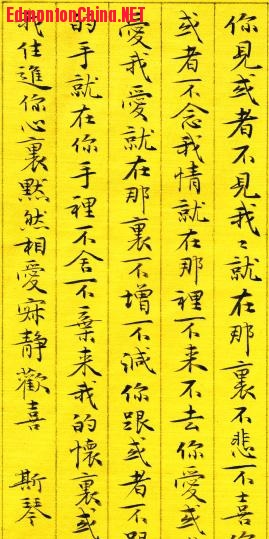 EdmontonChina.NET
你見或者不見我〻就在那裏不悲不喜你
或者不念我情就在那裡不来不去你愛或
愛我愛就在那裏不增不減你跟或者不跟
的手就在你手裡不舍不棄来我的懷裏或
我住進你心裏默然相愛寂静歡喜 斯琴